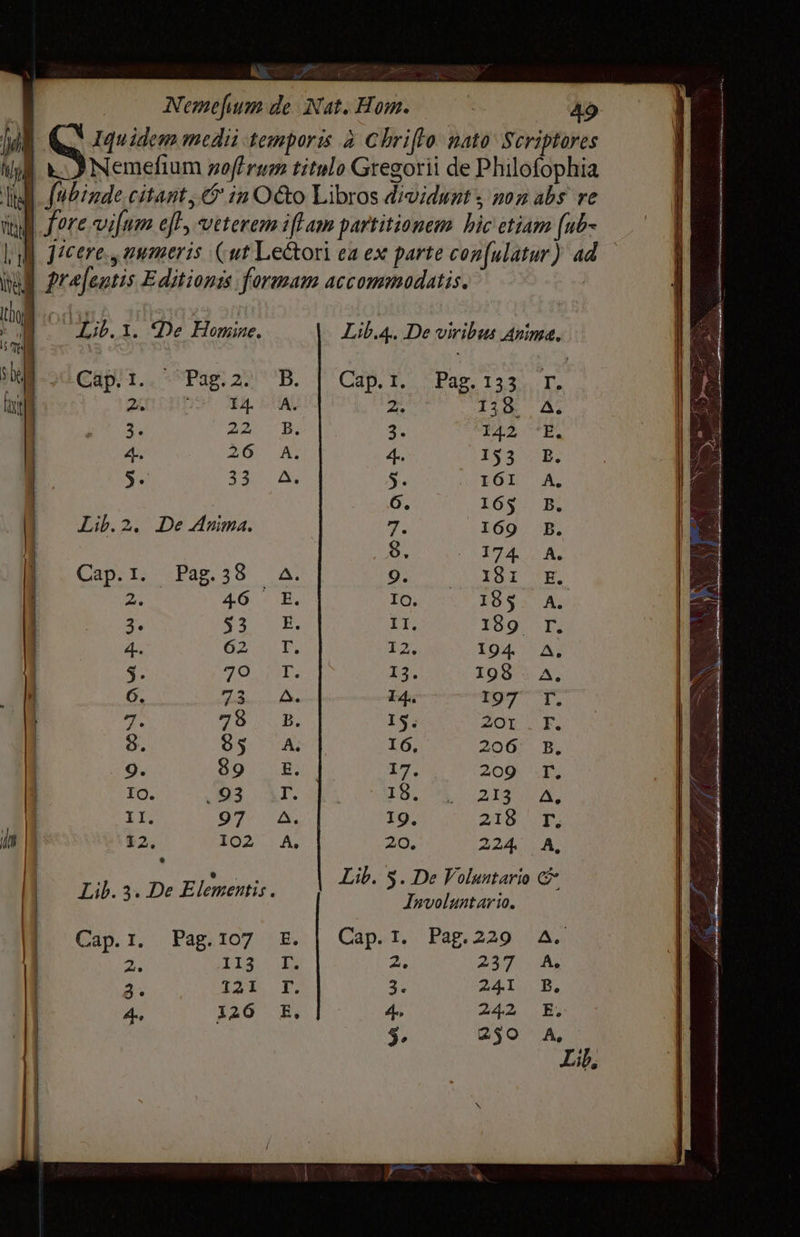 Nemeſium de Nat. Hom. 49
SIquidem medii temporis à Chriſto nato Scriptores
Nemeſium noſtrum titulo Gregorii de Philoſophia
ſubinde citant, & in Octo Libros dividunt; non abs re
fore viſum eſt, veterem iſtam partitionem hic etiam ſub-
jicere, numeris (ut Lectori ea ex parte conſulatur) ad
præſentis Editionis formam accommodatis.
Lib. 1. De Homine.
Cap. 1. Pag. 2. B.
2. 14 A.
3. 22 B.
4. 26 A.
5. 33 Δ.
Lib. 2. De Anima.
Cap. 1. Pag. 38 Δ.
2. 46 E.
3. 53 E.
4. 62 Γ.
5. 70 Γ.
6. 73 Δ.
7. 78 B.
8. 85 A.
9. 89 E.
10. 93 Γ.
11. 97 Δ.
12. 102 A.
Lib. 3. De Elementis.
Cap. 1. Pag. 107 E.
2. 113 Γ.
3. 121 Γ.
4. 126 E.
Lib. 4. De viribus Animæ.
Cap. 1. Pag. 133 Γ.
2. 138 Δ.
3. 142 E.
4. 153 B.
5. 161 A.
6. 165 B.
7. 169 B.
8. 174 A.
9. 181 E.
10. 185 A.
11. 189 Γ.
12. 194 Δ.
13. 198 Δ.
14. 197 Γ.
15. 201 Γ.
16. 206 B.
17. 209 Γ.
18. 213 Δ.
19. 218 Γ.
20. 224 A.
Lib. 5. De Voluntario &
Involuntario.
Cap. 1. Pag. 229 Δ.
2. 237 A.
3. 241 B.
4. 242 E.
5. 250 A.
Lib.